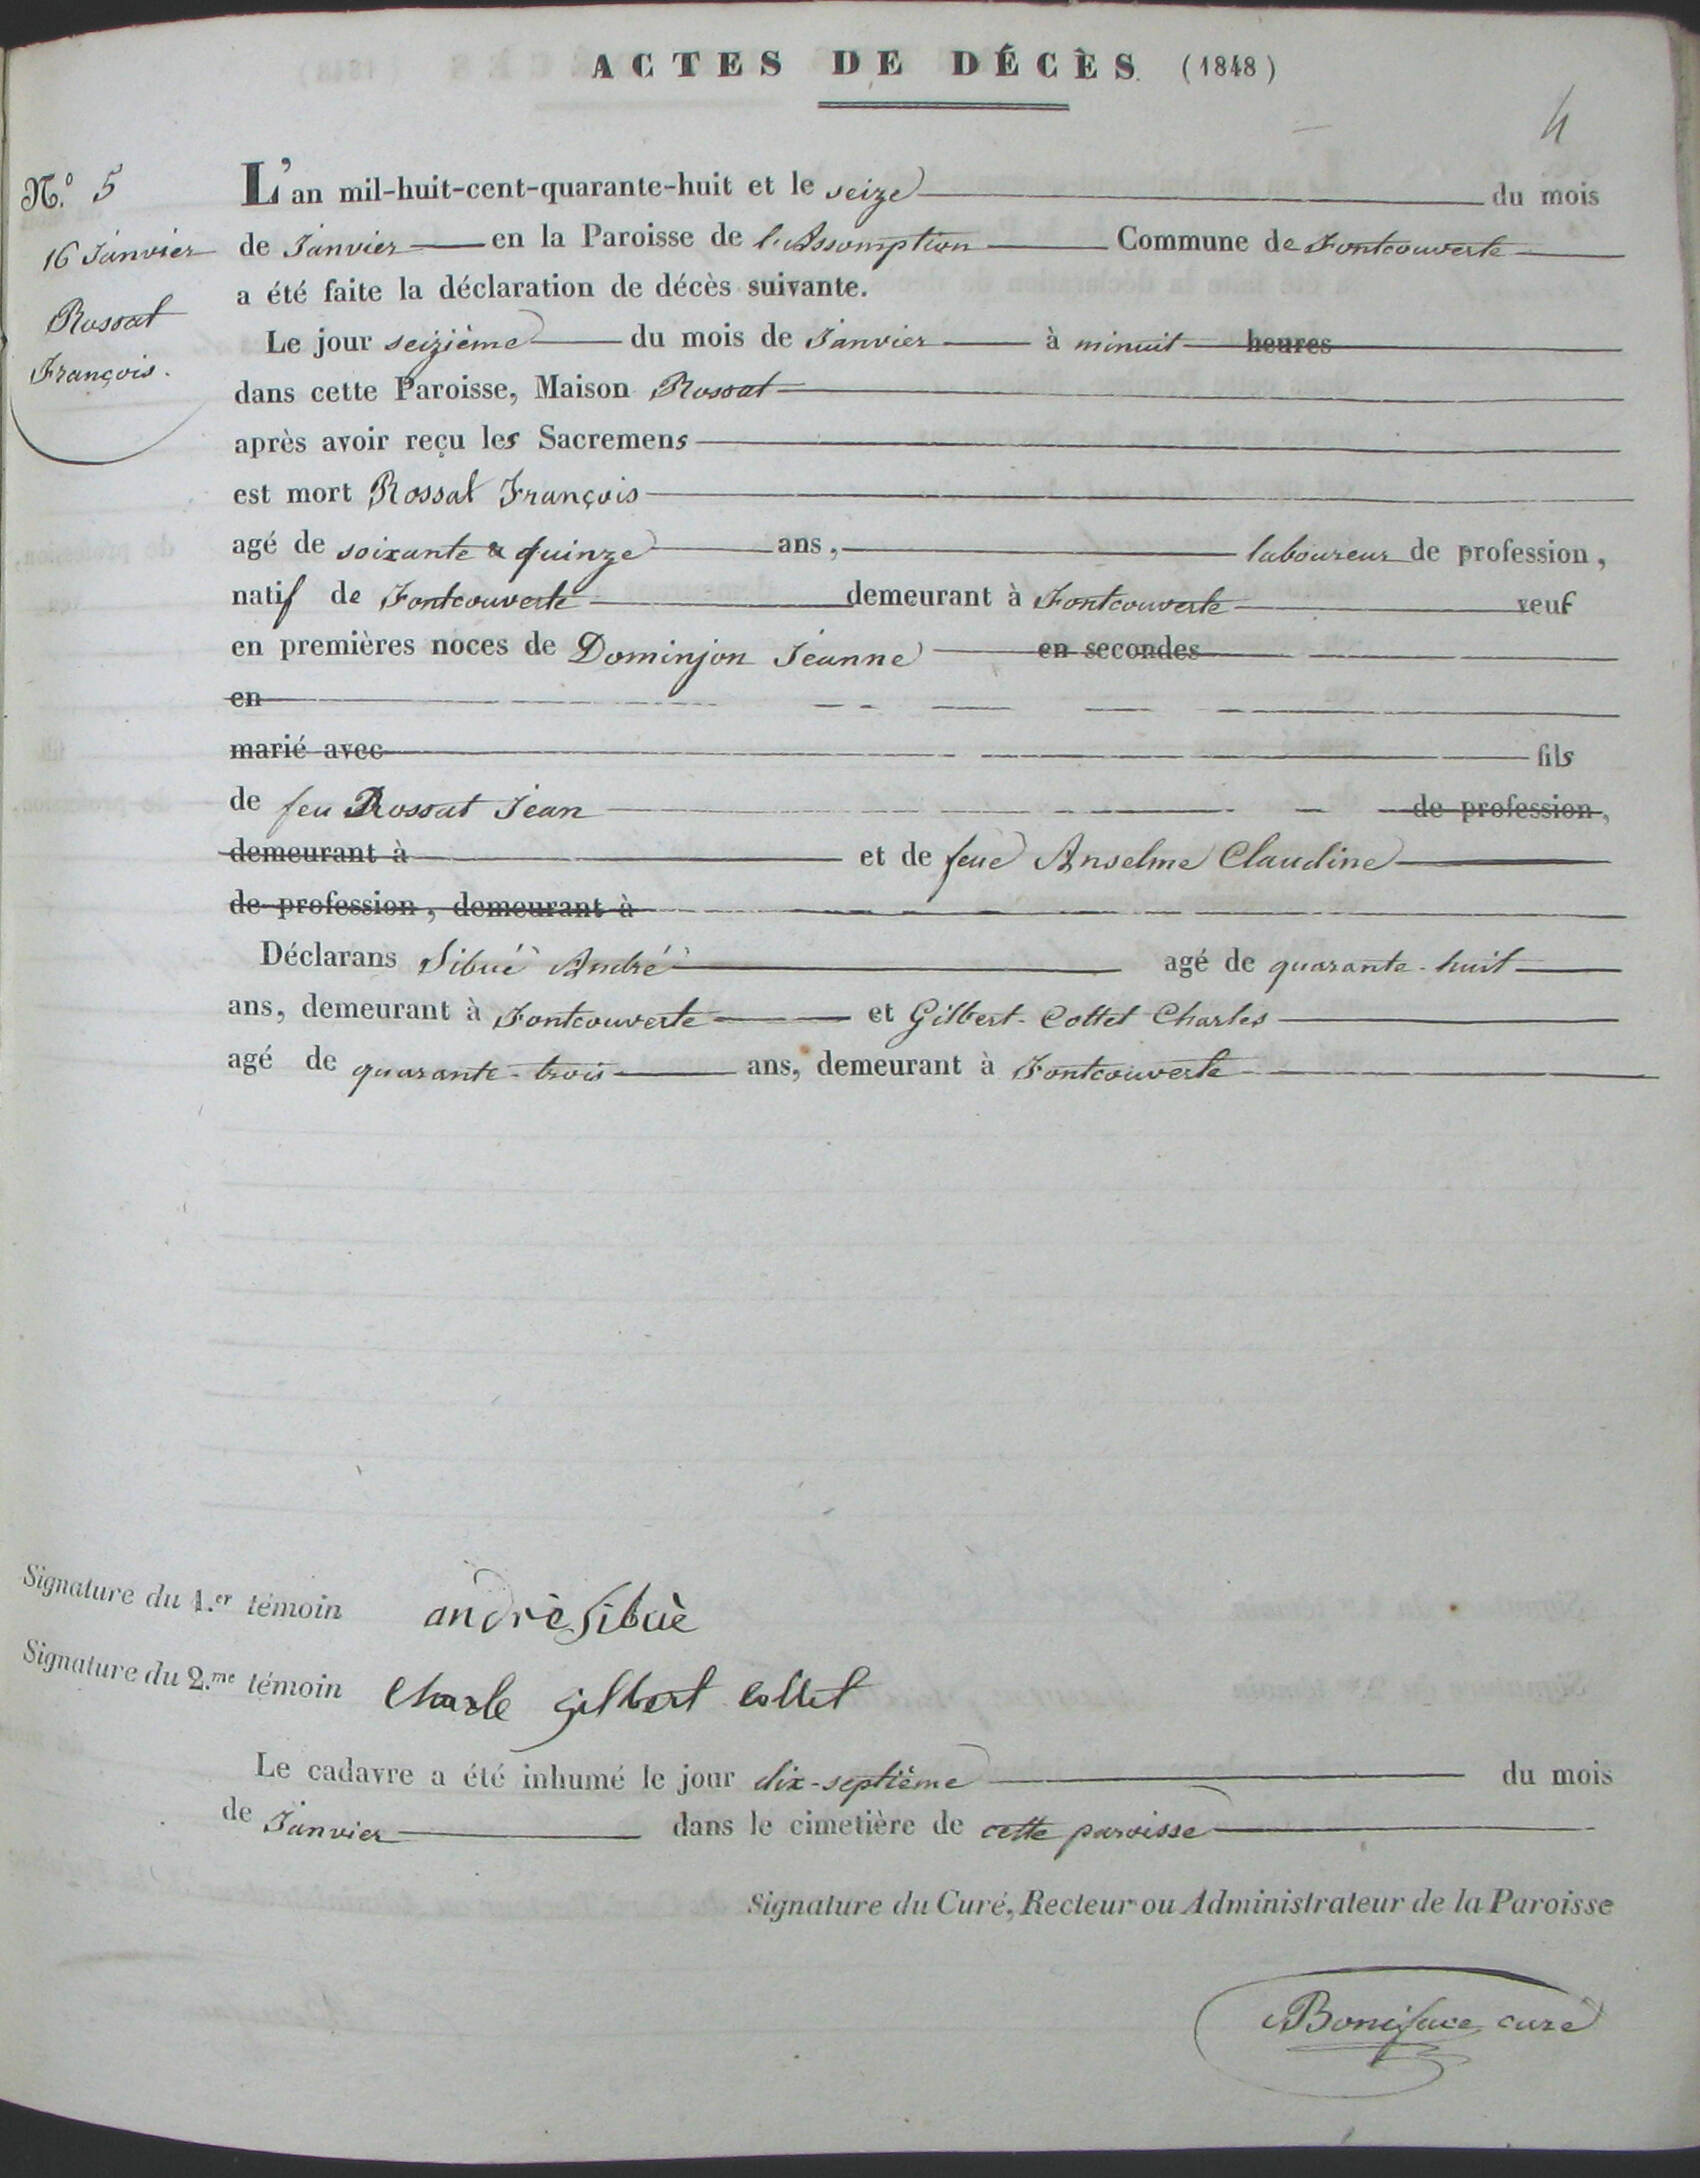 ACTES DE DÉCÈS. (1848)
4
N.º 5
16 Janvier
Rossat
François.
L'an mil-huit-cent-quarante-huit et le seize du mois
de Janvier en la Paroisse de l'Assomption Commune de Fontcouverte
a été faite la déclaration de décès suivante.
Le jour seizième du mois de Janvier à minuit heures
dans cette Paroisse, Maison Rossat
après avoir reçu les Sacremens
est mort Rossat François
agé de soixante & quinze ans, laboureur de profession,
natif de Fontcouverte demeurant à Fontcouverte veuf
en premières noces de Dominjon Jeanne en secondes
en
marié avec fils
de feu Rossat Jean de profession,
demeurant à et de feue Anselme Claudine
de profession, demeurant à
Déclarans Sibué André agé de quarante-huit
ans, demeurant à Fontcouverte et Gilbert-Collet Charles
agé de quarante-trois ans, demeurant à Fontcouverte
Signature du 1.er témoin andrè Sibuè
Signature du 2.me témoin Charle gilbert collet
Le cadavre a été inhumé le jour dix-septième du mois
de Janvier dans le cimetière de cette paroisse
Signature du Curé, Recteur ou Administrateur de la Paroisse
Boniface curé